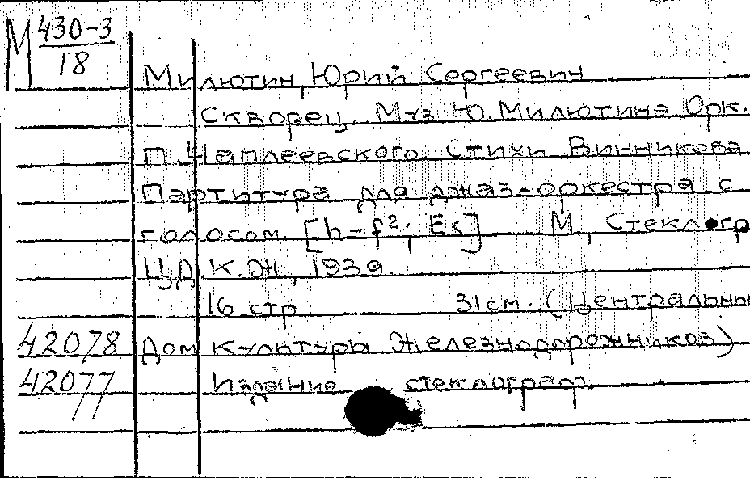 М 430-3
18
Милютин, Юрий Сергеевич
Скворец. Муз. Ю. Милютина Орк.
П. Чаплеевского. Стихи Винникова
Партитура для джаз-оркестра с
голосом [h-f²; Es] М, Стеклогр
ЦДКЖ, 1939
16 стр 31 см. (Центральны
42078 Дом культуры Железнодорожников)
42077 Издание стеклограф.